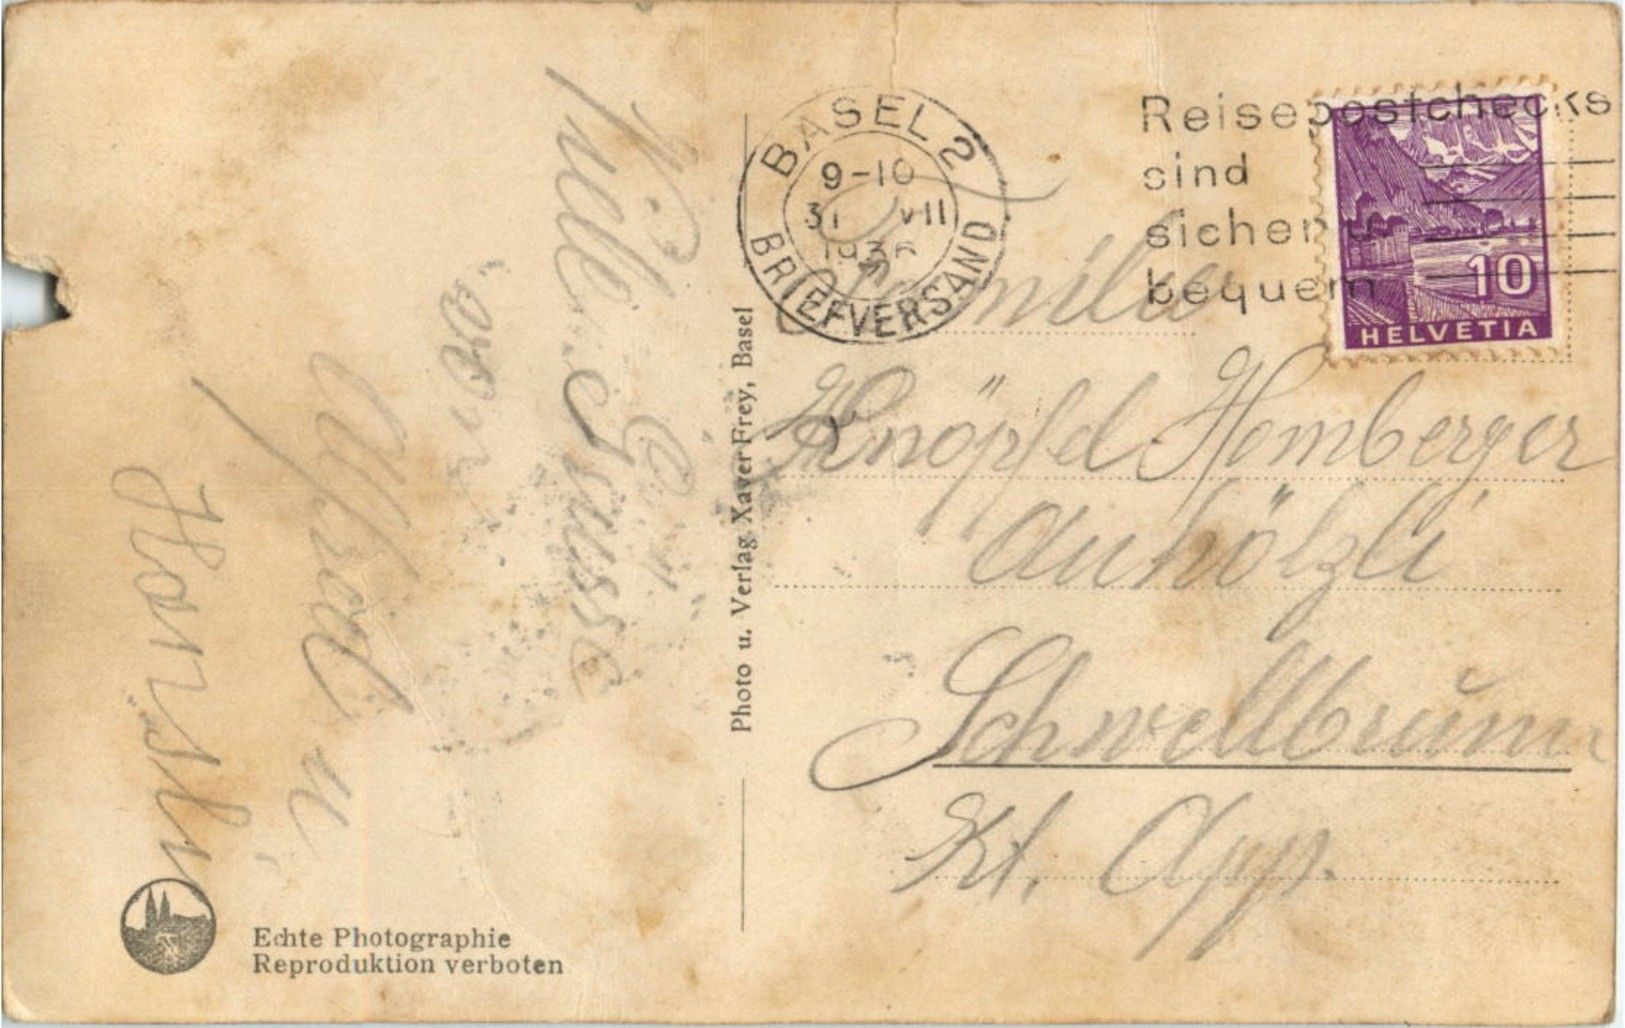 Viele Grüsse
von
u.
BASEL 2
9-10
31 VII
BRIEFVERSAND
Reisepostchecks
sind
sicher u
bequem
10
HELVETIA
Familie
Knöpfel Homberger
Auhölzli
Schwellbrunn
Kt. App.
Photo u. Verlag Xaver Frey, Basel
Echte Photographie
Reproduktion verboten